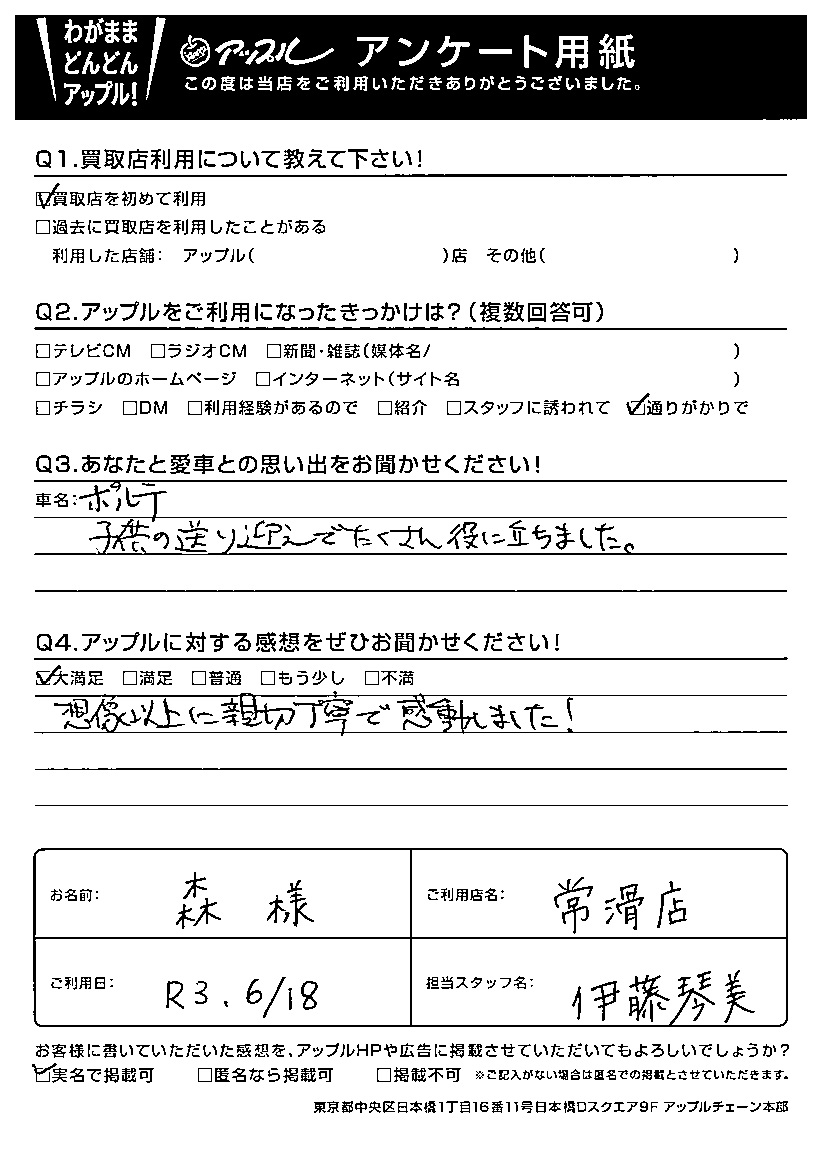 わがまま
どんどん
アップル!
アップル アンケート用紙
この度は当店をご利用いただきありがとうございました。
Q1.買取店利用について教えて下さい!
☑買取店を初めて利用
□過去に買取店を利用したことがある
利用した店舗: アップル( )店 その他( )
Q2.アップルをご利用になったきっかけは?(複数回答可)
□テレビCM □ラジオCM □新聞・雑誌(媒体名/ )
□アップルのホームページ □インターネット(サイト名 )
□チラシ □DM □利用経験があるので □紹介 □スタッフに誘われて ☑通りがかりで
Q3.あなたと愛車との思い出をお聞かせください!
車名:ポルテ
子供の送り迎えでたくさん役に立ちました。
Q4.アップルに対する感想をぜひお聞かせください!
☑大満足 □満足 □普通 □もう少し □不満
想像以上に親切丁寧で感動しました!
お名前: 森 様 ご利用店名: 常滑店
ご利用日: R3.6/18 担当スタッフ名: 伊藤琴美
お客様に書いていただいた感想を、アップルHPや広告に掲載させていただいてもよろしいでしょうか?
☑実名で掲載可 □匿名なら掲載可 □掲載不可 ※ご記入がない場合は匿名での掲載とさせていただきます。
東京都中央区日本橋1丁目16番11号日本橋Dスクエア9F アップルチェーン本部